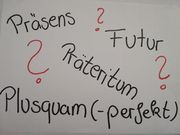 Präsens ?
Futur
? Präteritum ?
Plusquam(-perfekt)